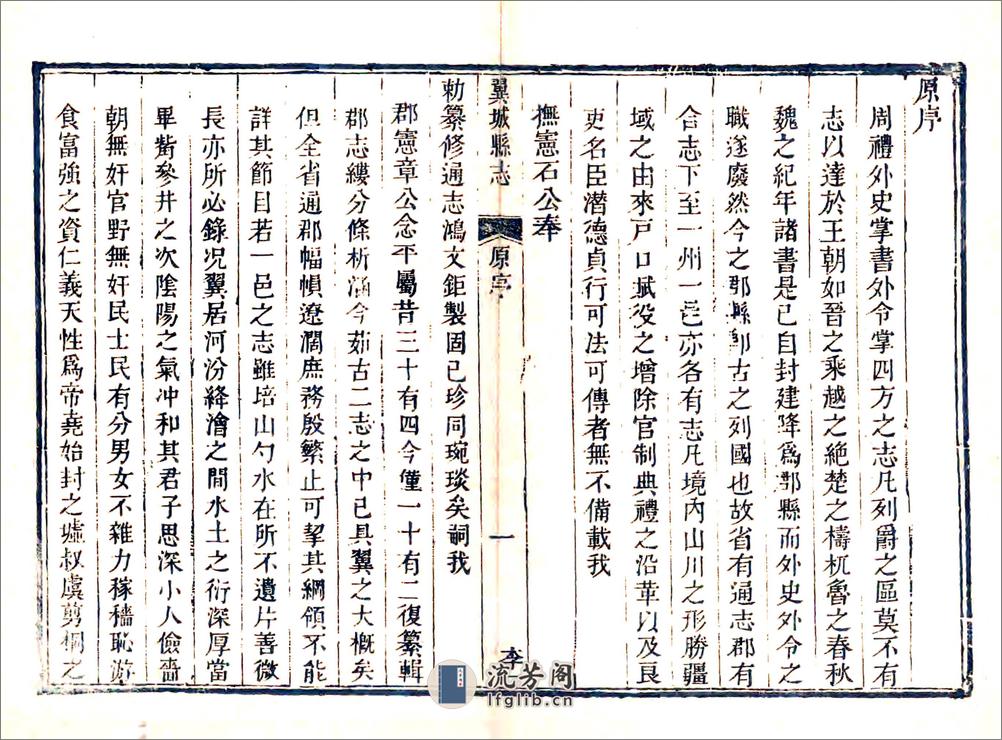 原序
周禮外史掌書外令掌四方之志凡列爵之區莫不有
志以達於王朝如晉之乘越之絶楚之檮杌魯之春秋
魏之紀年諸書是已自封建降爲郡縣而外史外令之
職遂廢然今之郡縣卽古之列國也故省有通志郡有
合志下至一州一邑亦各有志凡境內山川之形勝疆
域之由來戸口賦役之增除官制典禮之沿革以及良
吏名臣潜德貞行可法可傳者無不備載我
撫憲石公奉
翼城縣志 原序 一 李
勅纂修通志鴻文鉅製固已珍同琬琰矣嗣我
郡憲章公念平屬昔三十有四今僅一十有二復纂輯
郡志縷分條析涵今茹古二志之中已具翼之大概矣
但全省通郡幅幀遼濶庶務殷繁止可挈其綱領不能
詳其節目若一邑之志雖培山勺水在所不遺片善微
長亦所必錄况翼居河汾絳澮之間水土之衍深厚當
畢觜參井之次隂陽之氣冲和其君子思深小人儉嗇
朝無奸官野無奸民士民有分男女不雜力稼穡恥游
食富強之資仁義天性爲帝堯始封之墟叔虞剪桐之
流芳阁
lfglib.cn